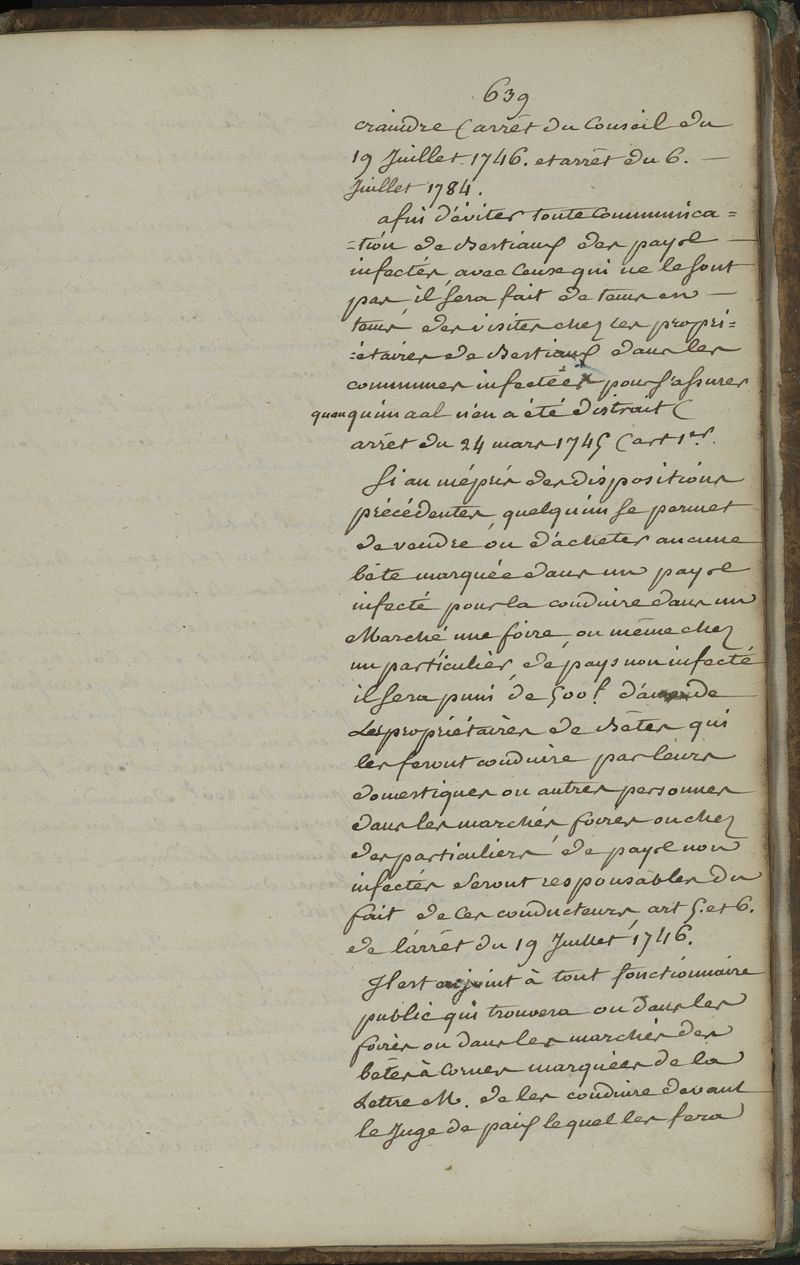 639
craindre (arrêt du Conseil du
19 Juillet 1746. et arrêt du 6. —
Juillet 1784.
afin d'éviter toute Communica =
= tion de Bestiaux des pays —
infectés, avec Ceux qui ne le sont
pas, il sera fait de tems en —
tems des visites chez les propri =
= étaires de Bestiaux dans les
communes infectées pour s'assurer
qu'un aal n'en a été distrait (
arrêt du 24 mars 1745 (art 1er.
Si au mépris des dispositions
précédentes, quelqu'un se permet
de vendre ou d'acheter aucune
bête marquée dans un pays
infecté pour la conduire dans un
Marché, une foire, ou même chez
un particulier de pays non infecté
il sera puni de 500f. d'amende
Les propriétaires de Bêtes qui
les feront conduire par leurs
domestiques ou autres personnes
dans les marchés foires ou chez
des particuliers de pays non
infectés seront responsables du
fait de Ces conducteurs, art 5. et 6.
de l'arrêt du 19 Juillet 1746.
Il est enjoint à tout fonctionnaire
public qui trouvera ou dans les
foires ou dans les marchés des
bêtes à Cornes marquées de la
Lettre M. de les conduire devant
le Juge de paix lequel les fera